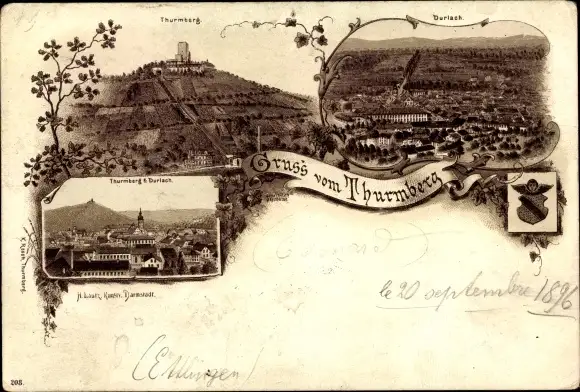 Thurmberg.
Durlach.
Gruss vom Thurmberg
Thurmberg b. Durlach.
H. Lautz, Kunstv. Darmstadt.
le 20 septembre 1896
(Ettlingen)
208.